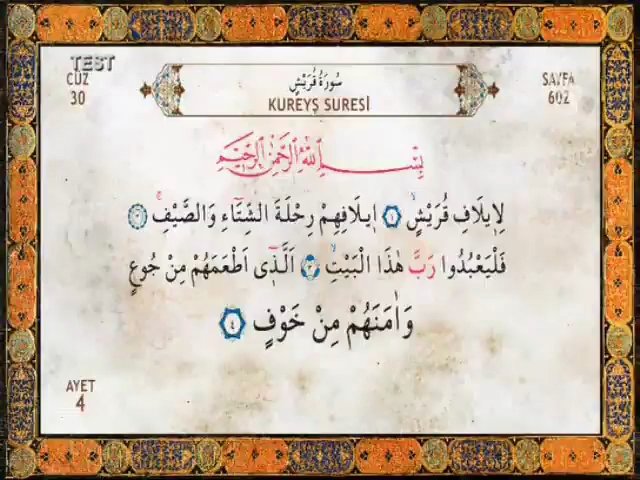 TEST
CÜZ
30
سُورَةُ قُرَيْشٍ
KUREYŞ SURESİ
SAYFA
602
بِسْمِ اللّٰهِ الرَّحْمٰنِ الرَّحِيمِ
لِا۪يلَافِ قُرَيْشٍۙ ﴿١﴾ ا۪يلَافِهِمْ رِحْلَةَ الشِّتَٓاءِ وَالصَّيْفِۚ ﴿٢﴾
فَلْيَعْبُدُوا رَبَّ هٰذَا الْبَيْتِۙ ﴿٣﴾ اَلَّذ۪ٓي اَطْعَمَهُمْ مِنْ جُوعٍ
وَاٰمَنَهُمْ مِنْ خَوْفٍ ﴿٤﴾
AYET
4